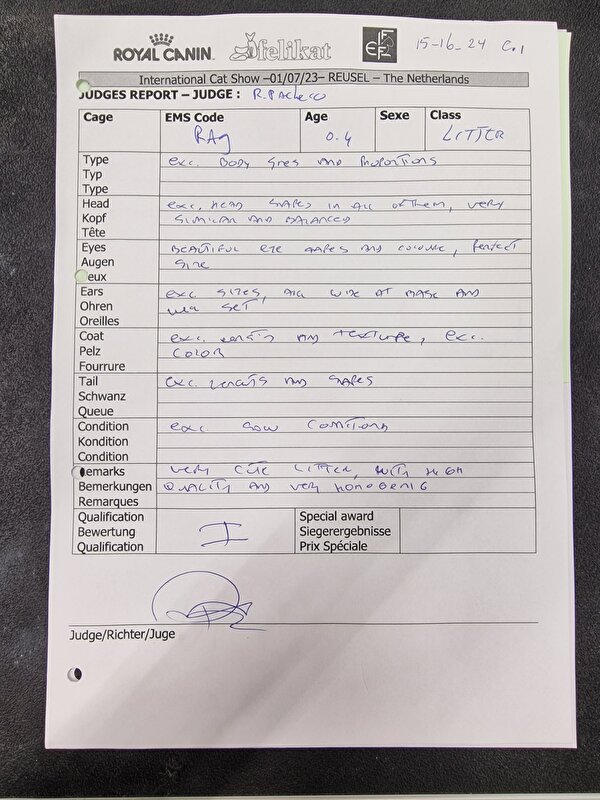 ROYAL CANIN felikat FIFe 15-16-24 C.1
International Cat Show –01/07/23– REUSEL – The Netherlands
JUDGES REPORT – JUDGE : R. PACHECO
Cage EMS Code Age Sexe Class
RAG 0.4 LITTER
Type exc. BODY SIZES AND PROPORTIONS
Typ
Type
Head exc. HEAD SHAPES IN ALL OF THEM, VERY
Kopf SIMILAR AND BALANCED
Tête
Eyes BEAUTIFUL EYE SHAPES AND COLOUR, PERFECT
Augen SIZE
eux
Ears exc. SIZES, ALL WIDE AT BASE AND
Ohren WELL SET
Oreilles
Coat exc. LENGTHS AND TEXTURE, exc.
Pelz COLOR
Fourrure
Tail exc. LENGTHS AND SHAPES
Schwanz
Queue
Condition exc. SHOW CONDITIONS
Kondition
Condition
emarks VERY CUTE LITTER, WITH HIGH
Bemerkungen QUALITY AND VERY HOMOGENIG
Remarques
Qualification Special award
Bewertung I Siegerergebnisse
Qualification Prix Spéciale
Judge/Richter/Juge